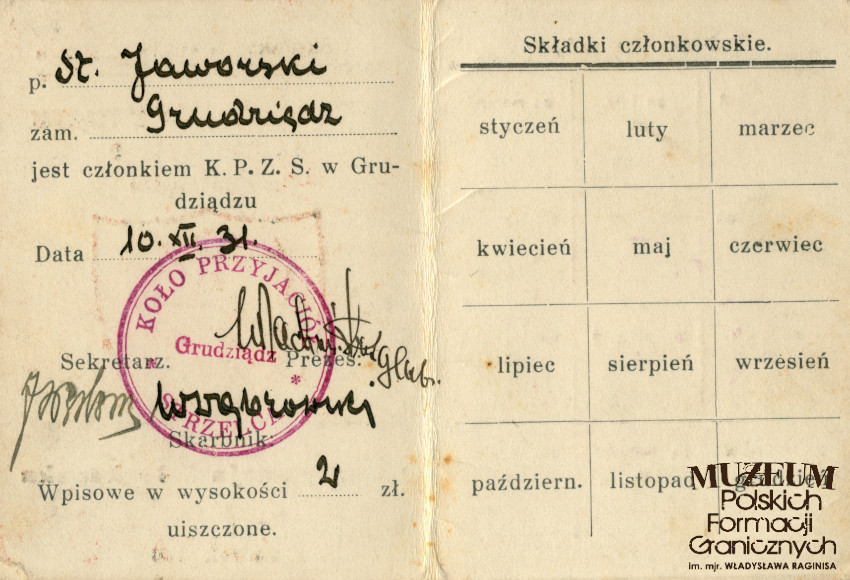 p. St. Jaworski
zam. Grudziądz
jest członkiem K. P. Z. S. w Gru-
dziądzu
Data 10. XII. 31.
KOŁO PRZYJACIÓŁ
Grudziądz
STRZELCA
Sekretarz. Prezes.
Skarbnik:
Wpisowe w wysokości 2 zł.
uiszczone.
Składki członkowskie.
styczeń luty marzec
kwiecień maj czerwiec
lipiec sierpień wrzesień
październ. listopad grudzień
MUZEUM
Polskich
Formacji
Granicznych
im. mjr. WŁADYSŁAWA RAGINISA